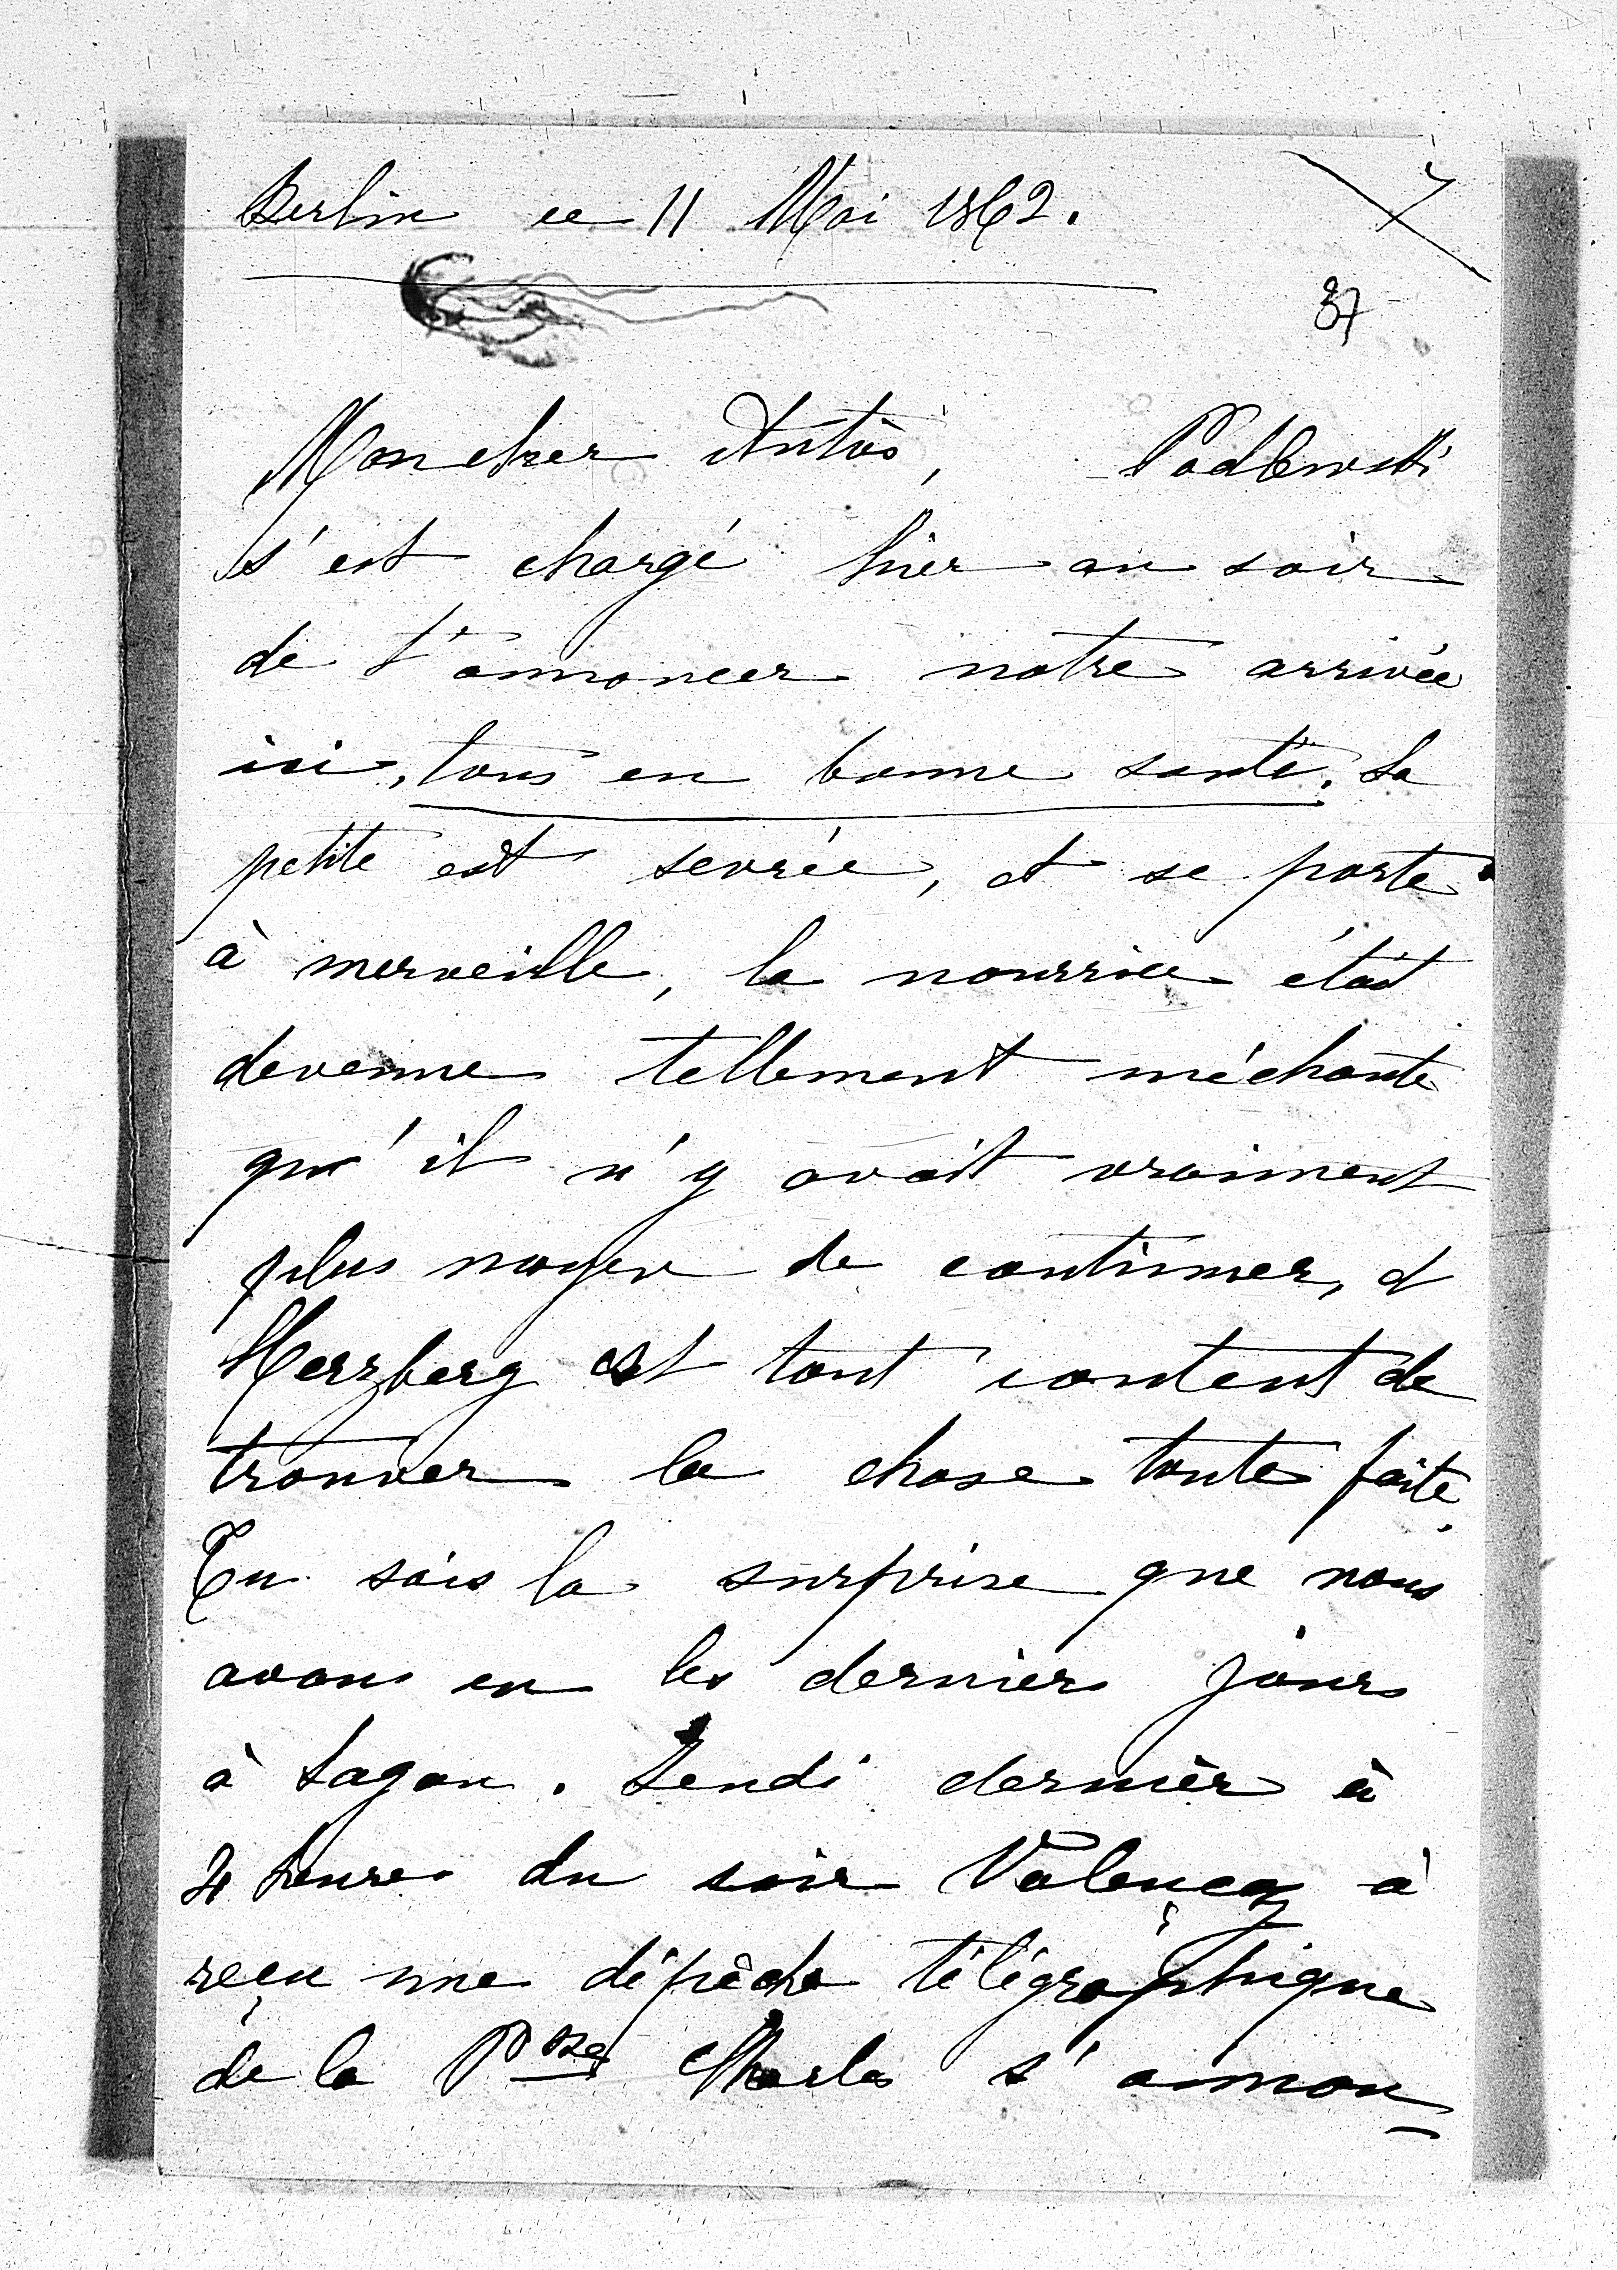 Berlin ce 11 Mai 1862.
7
37
Mon cher Antos, Podlewski
s'est chargé hier au soir
de t'annoncer notre arrivée
ici, tous en bonne santé. La
petite est sevrée, et se porte
à merveille, la nourrice était
devenue tellement méchante
qu'il n'y avait vraiment
plus moyen de continuer, et
Herzberg est tout content de
trouver la chose toute faite.
Tu sais la surprise que nous
avons eu les derniers jours
à Sagan. Lundi dernier à
4 heures du soir Valençay a
reçu une dépêche télégraphique
de la Psse Charles s'annon